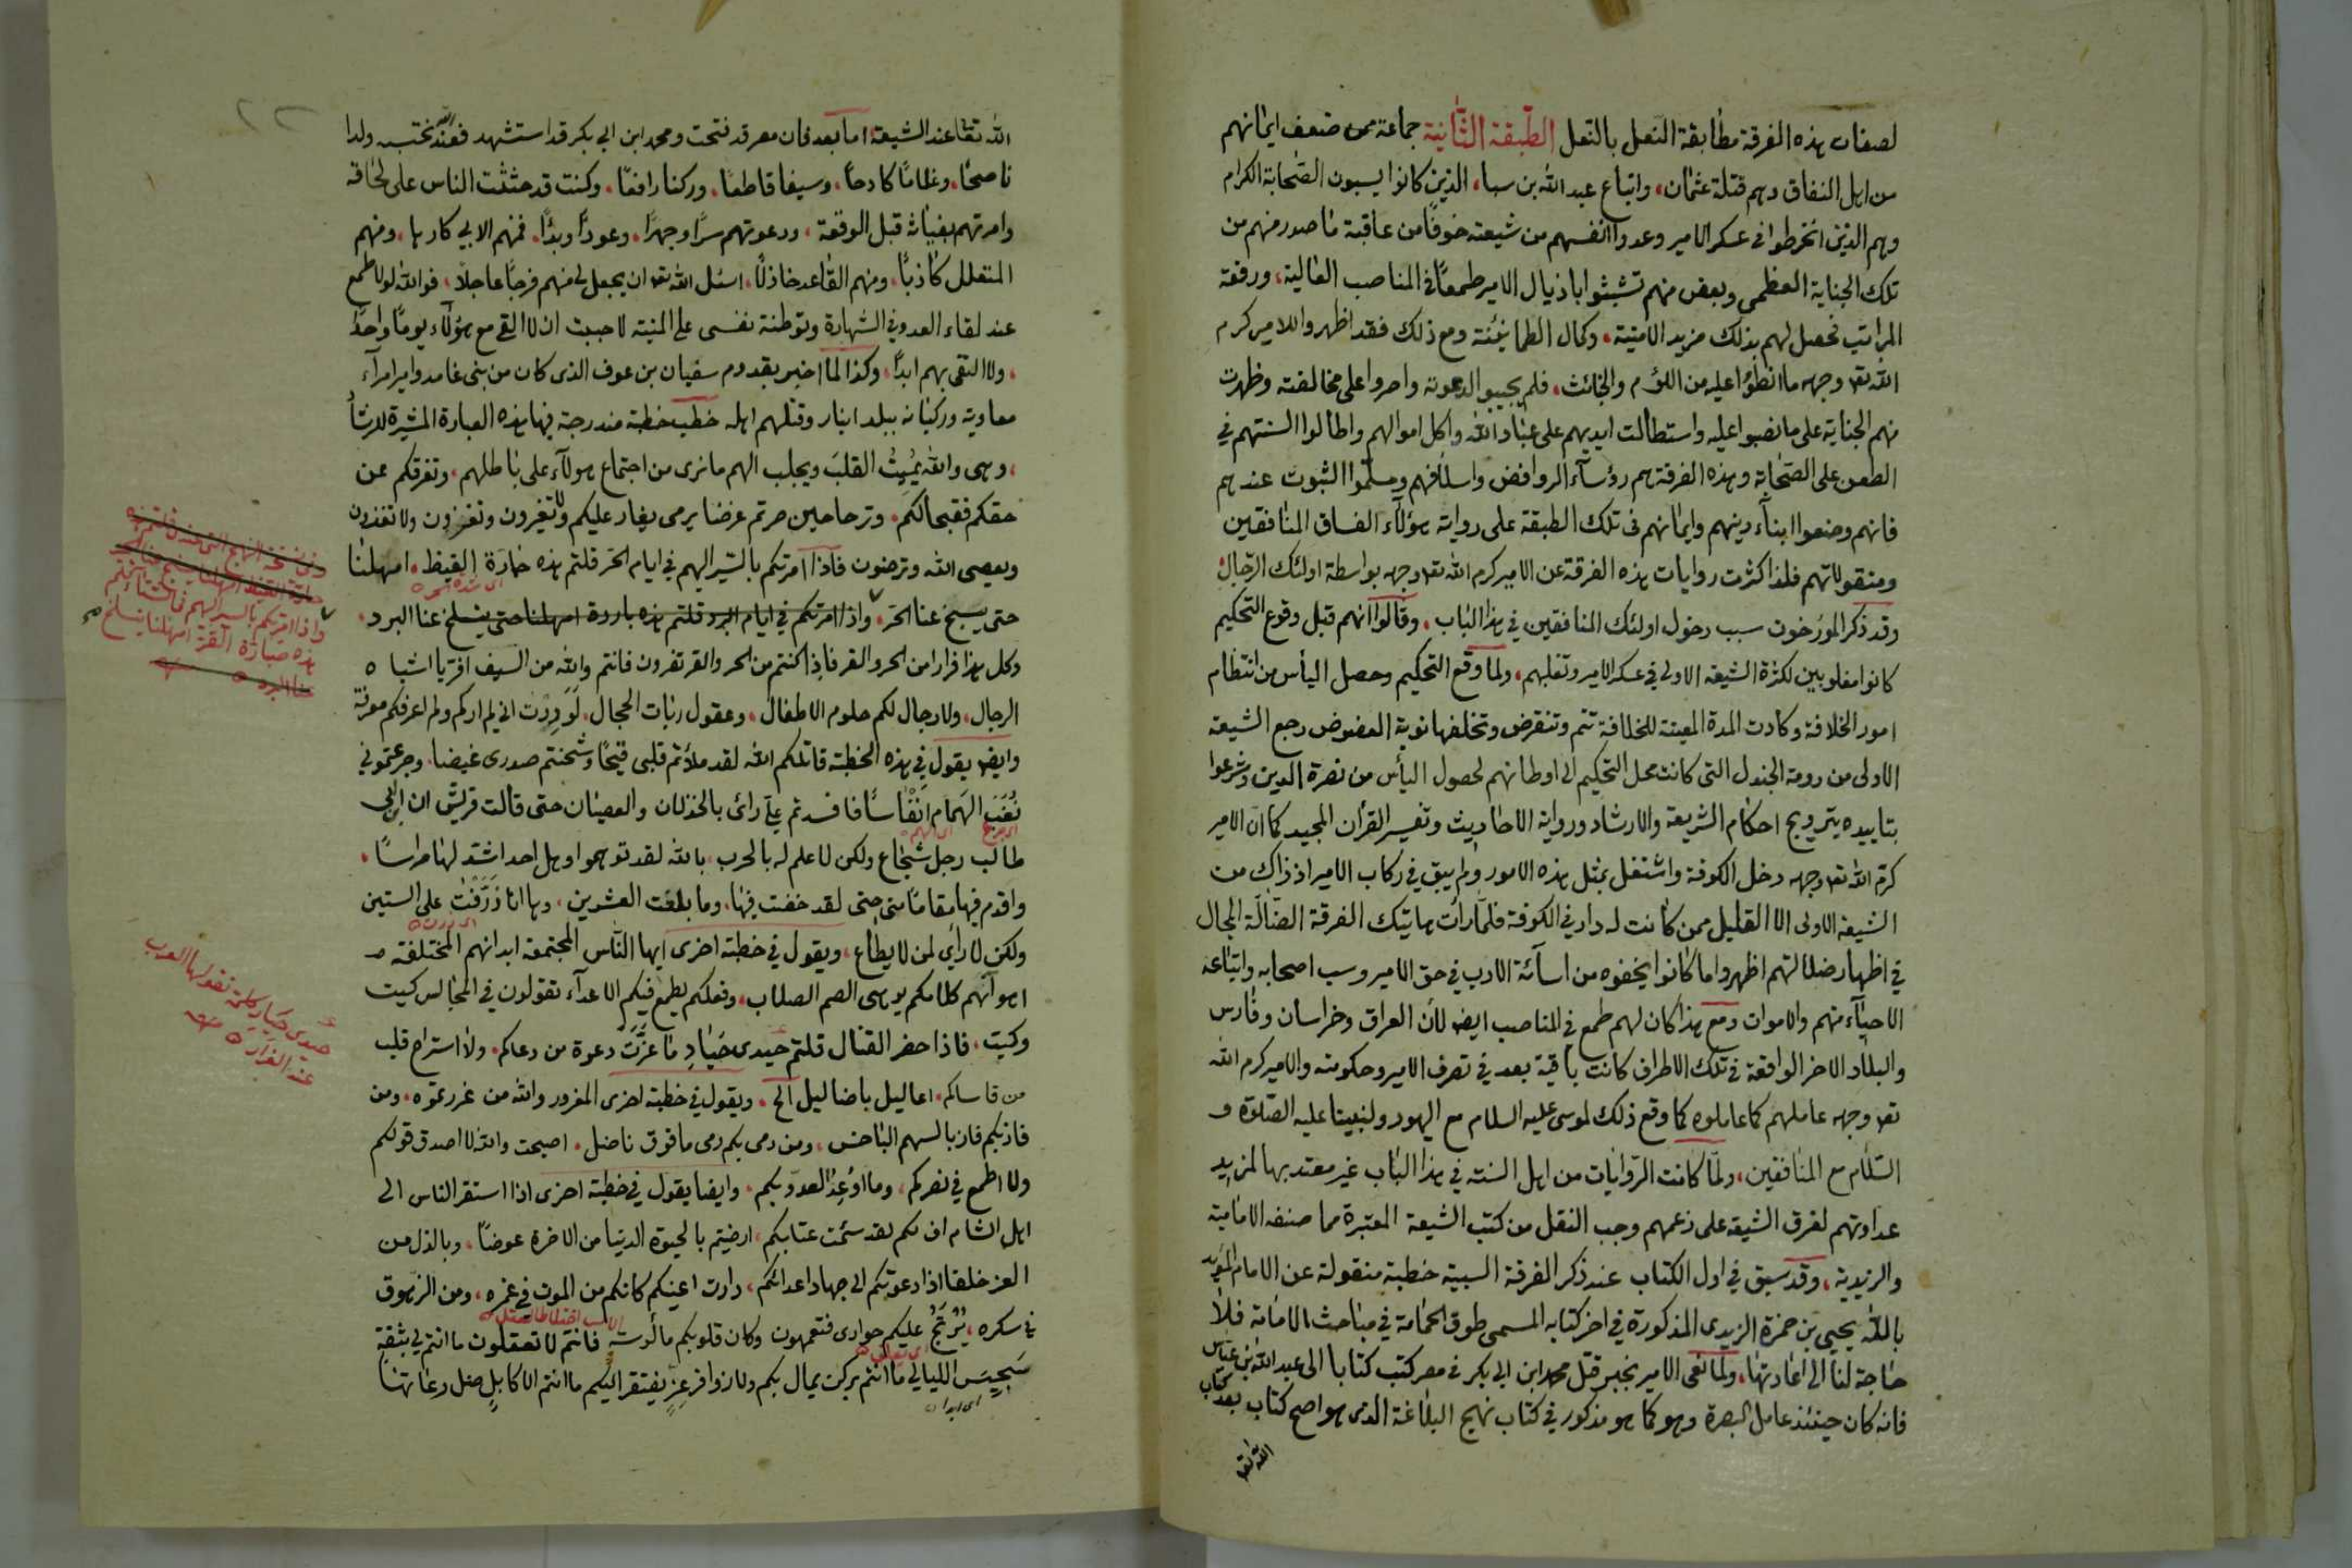 لصفات هذه الفرقة مطابقة النعل بالنعل الطبقة الثانية جماعة ممن ضعف ايمانهم
من اهل النفاق وهم قتلة عثمان، واتباع عبد الله بن سبا، الذين كانوا يسبون الصحابة الكرام
وهم الذين انخرطوا فى عسكر الامير وعدوا انفسهم من شيعته خوفا من عاقبة ما صدر منهم من
تلك الجناية العظمى وبعض منهم تشبثوا باذيال الامير طمعا فى المناصب العالية، ورفعة
المراتب فحصل لهم بذلك مزيد الامنية، وكمال الطمانينة ومع ذلك فقد اظهروا للامير كرم
الله تع وجهه ما انطوا عليه من اللؤم والخبائث، فلم يجيبوا لدعوته واصروا على مخالفته وظهرت
منهم الجناية على ما نصبوا عليه واستطالت ايديهم على عباد الله واكل اموالهم واطالوا السنتهم فى
الطعن على الصحابة وهذه الفرقة هم رؤساء الروافض واسلافهم ومسلموا الثبوت عندهم
فانهم وضعوا ابناء دينهم وايمانهم فى تلك الطبقة على رواية هؤلاء الفساق المنافقين
ومنقولاتهم فلذا كثرت روايات هذه الفرقة عن الامير كرم الله تع وجهه بواسطة اولئك الرجال
وقد ذكر المورخون سبب دخول اولئك المنافقين فى هذا الباب، وقالوا انهم قبل وقوع التحكيم
كانوا مغلوبين لكثرة الشيعة الاولى فى عسكر الامير وتغلبهم، ولما وقع التحكيم وحصل اليأس من انتظام
امور الخلافة وكادت المدة المعينة للخلافة تتم وتنقرض وتخلفها نوبة العضوض رجع الشيعة
الاولى من دومة الجندل التى كانت محل التحكيم الى اوطانهم لحصول اليأس من نصرة الدين وشرعوا
بتاييده بترويج احكام الشريعة والارشاد ورواية الاحاديث وتفسير القرآن المجيد كما ان الامير
كرم الله تع وجهه دخل الكوفة واشتغل بمثل هذه الامور ولم يبق فى ركاب الامير اذ ذاك من
الشيعة الاولى الا القليل ممن كانت له دار فى الكوفة فلما رات هاتيك الفرقة الضالة المجال
فى اظهار ضلالتهم اظهروا ما كانوا يخفوه من اسائة الادب فى حق الامير وسب اصحابه واتباعه
الاحياء منهم والاموات ومع هذا كان لهم طمع فى المناصب ايضا لان العراق وخراسان وفارس
والبلاد الاخر الواقعة فى تلك الاطراف كانت باقية بعد فى تصرف الامير وحكومته والامير كرم الله
تع وجهه عاملهم كما عاملوه كما وقع ذلك لموسى عليه السلام مع اليهود ولنبينا عليه الصلوة و
السلام مع المنافقين، ولما كانت الروايات من اهل السنة فى هذا الباب غير معتد بها لمزيد
عداوتهم لفرق الشيعة على زعمهم وجب النقل من كتب الشيعة المعتبرة مما صنفه الامامية
والزيدية، وقد سبق فى اول الكتاب عند ذكر الفرقة السبية خطبة منقولة عن الامام المؤيد
بالله يحيى بن حمزة الزيدى المذكورة فى اخر كتابه المسمى طوق الحمامة فى مباحث الامامة فلا
حاجة لنا الى اعادتها، ولما نعى الامير بخبر قتل محمد ابن ابى بكر فى مصر كتب كتابا الى عبد الله بن عباس
فانه كان حينئذ عامل البصرة وهو كما هو مذكور فى كتاب نهج البلاغة الذى هو اصح كتاب بعد كتاب
الله تعا
الله تعا عند الشيعة، اما بعد فان مصر قد فتحت ومحمد ابن ابى بكر قد استشهد فعند الله نحتسبه ولدا
ناصحا، وغلاما كادحا، وسيفا قاطعا، وركنا رافعا، وكنت قد حثثت الناس على لحاقه
وامرتهم بغياثه قبل الوقعة، ودعوتهم سرا وجهرا، وعودا وبدا، فمنهم الابى كارها، ومنهم
المتعلل كاذبا، ومنهم القاعد خاذلا، اسئل الله تع ان يجعل لى منهم فرجا عاجلا، فوالله لولا طمع
عند لقاء العدو فى الشهادة وتوطنة نفسى على المنية لاحببت ان لا القى مع هؤلاء يوما واحدا
، ولا التقى بهم ابدا، وكذا لما اخبر بقدوم سفيان بن عوف الذى كان من بنى غامد وامير امراء
معاوية وركبانه ببلد انبار وقتلهم اهله خطب خطبة مندرجة فيها هذه العبارة المشيرة للارشاد
، وهى والله يميث القلب ويجلب الهم ما نرى من اجتماع هولاء على باطلهم، وتفرقكم عن
حقكم فقبحا لكم، وترحا حين صرتم غرضا يرمى يغار عليكم ولا تغيرون وتغزون ولا تغزون
ويعصى الله وترضون فاذا امرتكم بالسير اليهم فى ايام الحر قلتم هذه حمارة القيظ، امهلنا
اى شدة الحر
حتى يسبخ عنا الحر، واذا امرتكم فى ايام البرد قلتم هذه باردة امهلنا حتى ينسلخ عنا البرد،
وكل هذا فرارا من الحر والقر فاذا كنتم من الحر والقر تفرون فانتم والله من السيف افر يا اشباه
الرجال، ولا رجال لكم حلوم الاطفال، وعقول ربات الحجال، لوددت انى لم اركم ولم اعرفكم معرفة
وايضا يقول فى هذه الخطبة قاتلكم الله لقد ملأتم قلبى قيحا وشحنتم صدرى غيضا، وجرعتمونى
نغب الهمام انفاسا فافسدتم على رائى بالخذلان والعصيان حتى قالت قريش ان ابن ابى
اى جرع اى الهم
طالب رجل شجاع ولكن لا علم له بالحرب، بالله لقد توهموا وهل احد اشد لها مراسا،
واقدم فيها مقاما منى حتى لقد خفت فيها، وما بلغت العشرين، وها انا ذرفت على الستين
اى زدت
ولكن لا راى لمن لا يطاع، ويقول فى خطبة اخرى ايها الناس المجتمعة ابدانهم المختلفة
اهوائهم كلامكم يوهى الصم الصلاب، وفعلكم يطمع فيكم الاعداء تقولون فى المجالس كيت
وكيت، فاذا حضر القتال قلتم حيدى حياد ما عزت دعوة من دعاكم، ولا استراح قلب
من قاساكم، اعاليل باضاليل الخ، ويقول فى خطبة اخرى المغرور والله من غررتموه، ومن
فازبكم فاز بالسهم الباخس، ومن رمى بكم رمى ما فوق ناضل، اصبحت والله لا اصدق قولكم
ولا اطمع فى نصركم، وما اوعد العدو بكم، وايضا يقول فى خطبة اخرى اذا استقر الناس الى
اهل الشام اف لكم لقد سئمت عتابكم، ارضيتم بالحيوة الدنيا من الاخرة عوضا، وبالذل من
العز خلفا اذا دعوتكم الى جهاد اعدائكم، دارت اعينكم كانكم من الموت فى غمرة، ومن الزهوق
فى سكره، يرتج عليكم حوارى فتعمهون وكان قلوبكم مألوسة فانتم لا تعقلون ما انتم لى بثقة
سجيس الليالى ما انتم بركن يمال بكم ولا زوافر عز يفتقر اليكم ما انتم الا كابل ضل رعاتها
اى ابدا
واذا امرتكم بالسير اليهم فى الشتاء قلتم
هذه صبارة القر امهلنا ينسلخ
عنا البرد
حيدى حياد كلمة تقولها العرب
عند الفرار